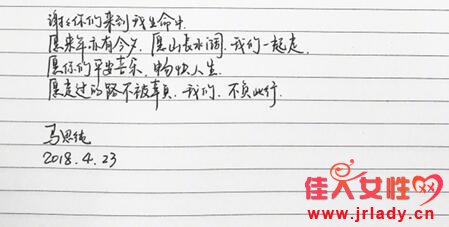 谢谢你们来到我生命中.
愿来年亦有今夕, 愿山长水阔, 我们一起走.
愿你们平安喜乐, 畅快人生.
愿走过的路不被辜负, 我们, 不负此行.
马思纯
2018.4.23
佳人女性
www.jrlady.cn